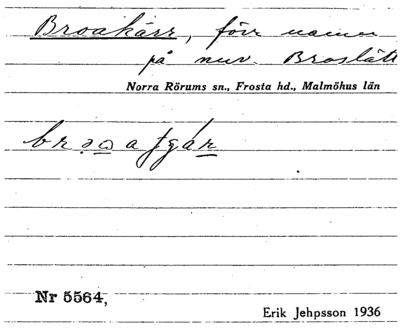 Broakärr, förr namn
på nuv. Broslätt
Norra Rörums sn., Frosta hd., Malmöhus län
Nr 5564,
Erik Jehpsson 1936